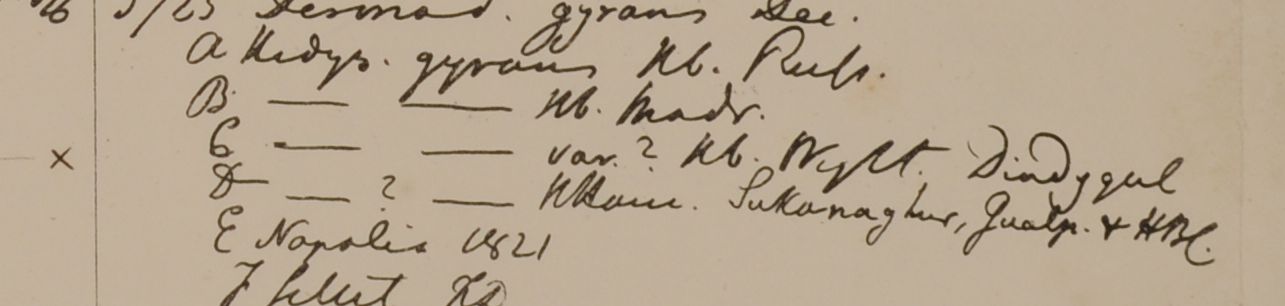 5725 Desmod. gyrans Dec.
A Hedys. gyrans Hb. Russ.
B — — Hb. Madr.
× C — — var.? Hb. Wight. Dindygul
D — ? — HHam. Sukanaghur, Gualp. & HBC.
E Napalia 1821
F Silhet FD